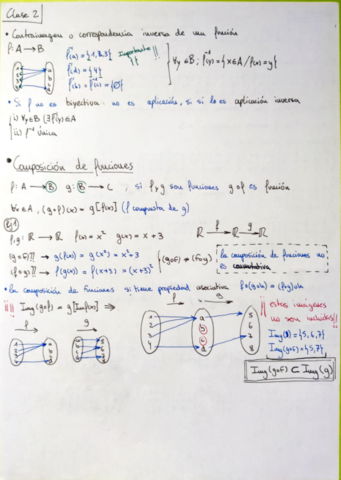 Clase 2
• Contraimagen o correspondencia inversa de una función
f: A → B
f⁻¹(a) = {1,2,3} Importante!!
f⁻¹(d) = {4}
f⁻¹(b) = f⁻¹(c) = {∅}
∀y∈B ; f⁻¹(y) = {x∈A / f(x) = y}
• Si f no es biyectiva no es aplicación, si sí lo es aplicación inversa
i) ∀y∈B (∃f⁻¹(y)∈A
ii) f⁻¹ única
• Composición de funciones
f: A → B g: B → C , si f y g son funciones g∘f es función
∀x∈A, (g∘f)(x) = g[f(x)] (f compuesta de g)
Ej 1
f,g: ℝ → ℝ f(x) = x² g(x) = x + 3
ℝ f→ ℝ g→ ℝ
(g∘f)) → g(f(x)) = g(x²) = x² + 3
(f∘g)) → f(g(x)) = f(x+3) = (x+3)²
(g∘f) ≠ (f∘g)
la composición de funciones no es conmutativa
• la composición de funciones si tiene propiedad asociativa f∘(g∘h) = (f∘g)∘h
!! Img(g∘f) = g[Img f(x)] ⇒
f g
f g
1 2 3 4
a b c d
5 6 7 8
!! estas imágenes no son incluidas!!
Img(g) = {5,6,7}
Img(g∘f) = {5,7}
Img(g∘f) ⊂ Img(g)